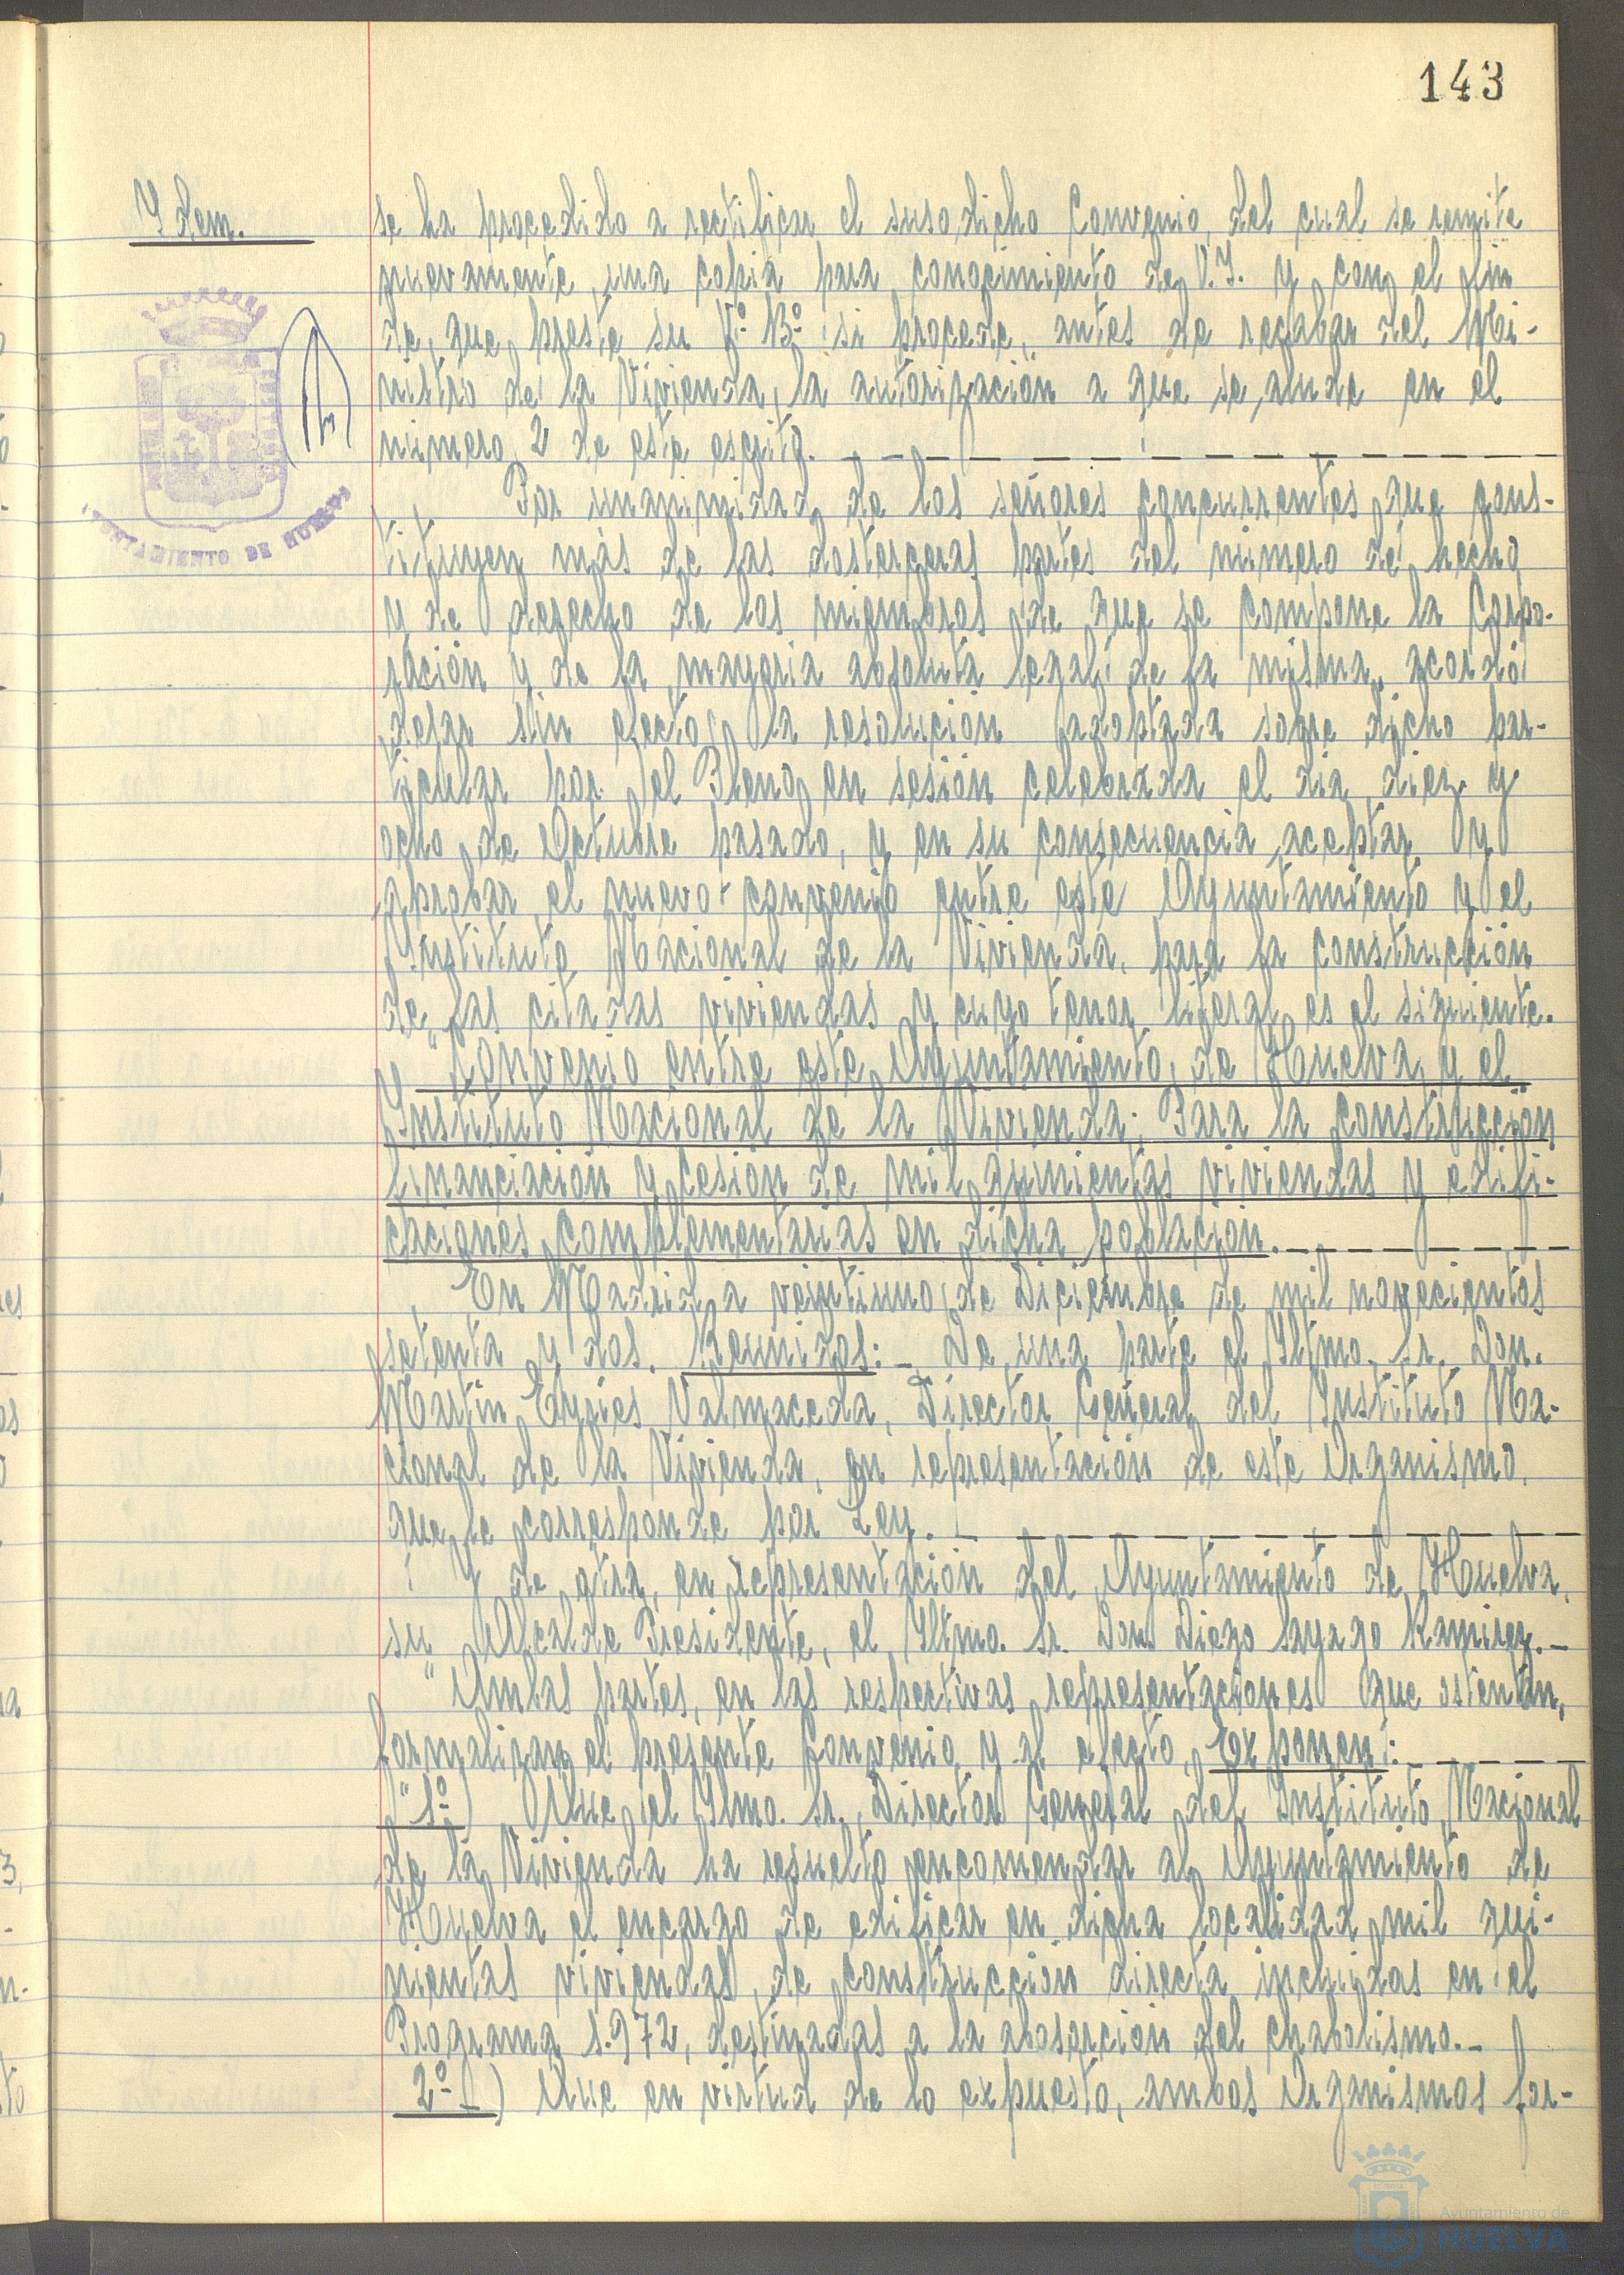 143
Ydem.
se ha procedido a rectificar el susodicho Convenio, del cual se remite
nuevamente, una copia para conocimiento de V.I. y con el fin
de que preste su Vº Bº si procede, antes de recabar del Mi-
nistro de la Vivienda, la autorización a que se alude en el
número 2 de este escrito.
Por unanimidad de los señores concurrentes que cons-
tituyen más de las dosterceras partes del número de hecho
y de derecho de los miembros de que se compone la Corpo-
ración y de la mayoria absoluta legal de la misma, acordó
dejar sin efecto la resolución adoptada sobre dicho par-
ticular por el Pleno en sesión celebrada el dia diez y
ocho de Octubre pasado, y en su consecuencia aceptar y
aprobar el nuevo convenio entre este Ayuntamiento y el
Instituto Nacional de la Vivienda, para la construcción
de las citadas viviendas y cuyo tenor literal es el siguiente.
"Convenio entre este Ayuntamiento, de Huelva y el
Instituto Nacional de la Vivienda; Para la construcción
financiación y cesión de mil quinientas viviendas y edifi-
caciones complementarias en dicha población.
En Madrid a veintiuno de Diciembre de mil novecientos
setenta y dos. Reunidos: - De una parte el Iltmo. Sr. Don.
Martín Eyries Valmaceda, Director General del Instituto Na-
cional de la Vivienda, en representación de este Organismo,
que le corresponde por Ley.
Y de otra, en representación del Ayuntamiento de Huelva,
su Alcalde Presidente, el Iltmo. Sr. Don Diego Sayago Ramirez.-
"Ambas partes, en las respectivas representaciones que ostentan,
formalizan el presente Convenio y al efecto, Exponen:
"1º-) Que el Ilmo. Sr. Director General del Instituto Nacional
de la Vivienda ha resuelto encomendar al Ayuntamiento de
Huelva el encargo de edificar en dicha localidad mil qui-
nientas viviendas de construcción directa incluidas en el
Programa 1.972, destinadas a la absorción del chabolismo.-
2º-) Que en virtud de lo expuesto, ambos Organismos for-
AYUNTAMIENTO DE HUELVA
Ayuntamiento de
HUELVA